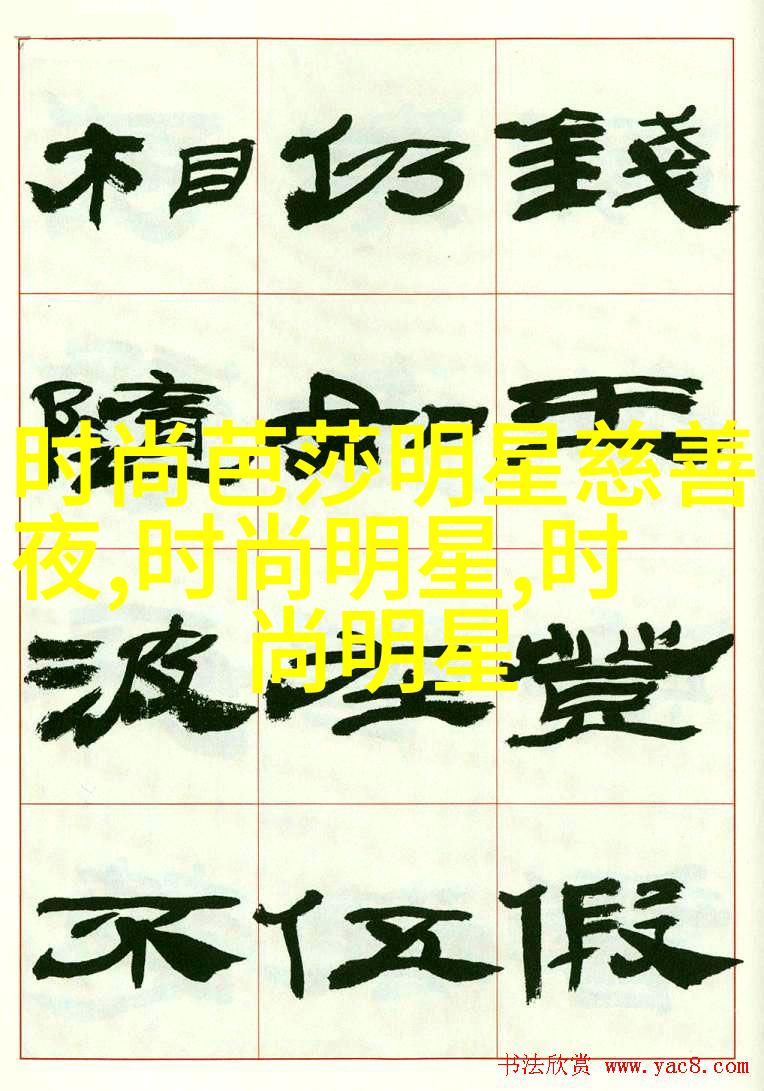 錢豈假
仍伍
相隨波不
时尚芭莎明星慈善
夜,时尚明星,时
尚明星
书法欣赏 www.yac8.com